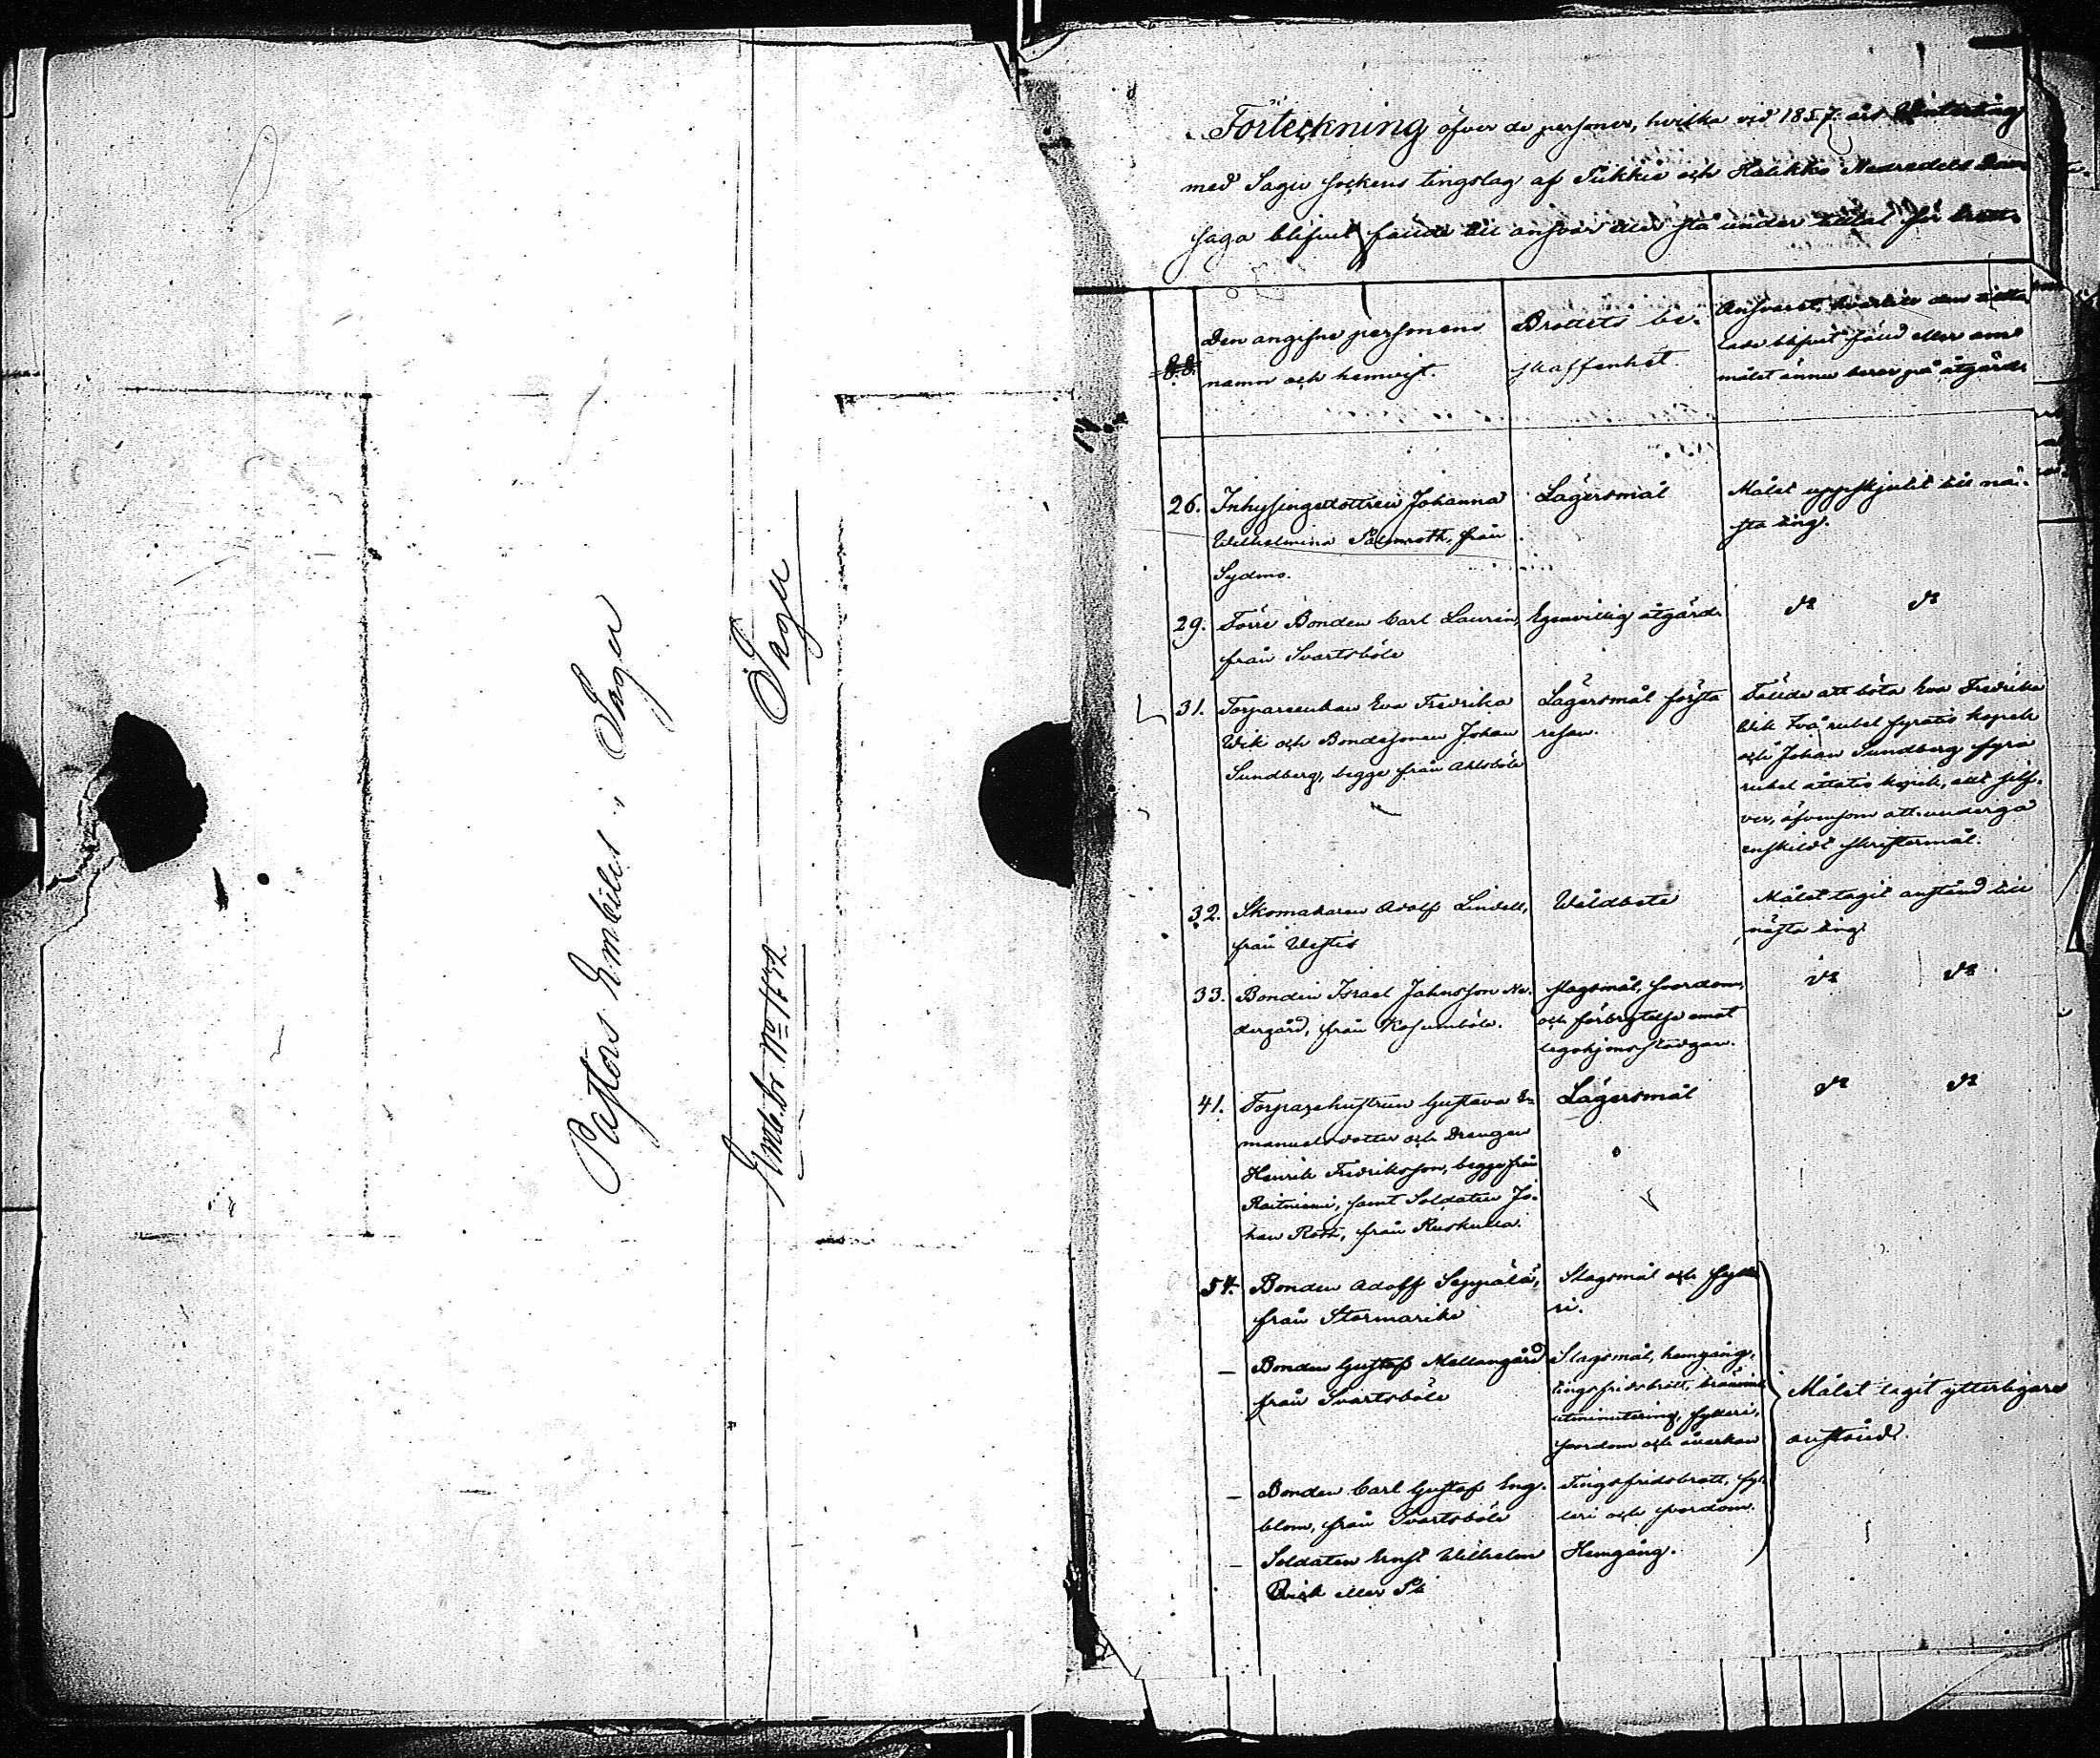 Pastors Embetet i Sagu
Embt. br. No 1442
Sagu
Förteckning öfver de personer, hvilka vid 1857 års Winterting
med Sagu sockens tingslag af Pikkis och Halikko Nedredels Dom-
saga blifvit fälde till ansvar eller stå under tilltal för brott.
§.§.
Den angifne personens
namn och hemvist.
Brottets be-
skaffenhet.
Ansvaret, hvartill den tilta-
lade blifvit fälld eller om
målet ännu beror på åtgärd.
26. Inhysingedottren Johanna
Wilhelmina Palmroth, från
Sydmo.
Lägersmål
Målet uppskjutit till nä-
sta ting.
29. Förre Bonden Carl Laurén,
från Svartsböle
Egenvillig åtgärd.
do do
31. Torpareenkan Eva Fredrika
Wik och Bondesonen Johan
Sundberg, begge från Ahlsböle
Lägersmål första
resan.
Fällde att böta Eva Fredrika
Wik två rubel fyratio kopek
och Johan Sundberg fyra
rubel åttatio kopek, allt silf-
ver, äfvensom att undergå
enskildt skriftermål.
32. Skomakaren Adolf Lindell,
från Westis
Wåldbete
Målet tagit anstånd till
nästa ting
33. Bonden Israel Johnsson Ne-
dergård, från Kosumböle.
slagsmål, svordom,
och förbrytelse emot
legohjonsstadgan.
do do
41. Torparehustrun Gustava E-
manuelsdotter och Drengen
Henrik Fredriksson, begge från
Raitniemi, samt Soldaten Jo-
han Roth, från Ruskulla.
Lägersmål
do do
54. Bonden Adolf Seppälä,
från Stormarike
Slagsmål och fylle-
ri.
– Bonden Gustaf Mellangård
från Svartsböle
Slagsmål, hemgång,
tingsfridsbrott, bränvins
utminutering, fylleri,
svordom och åverkan
Målet tagit ytterligare
anstånd.
– Bonden Carl Gustaf Eng-
blom, från Svartsböle
Tingsfridsbrott, fyl-
leri och svordom.
– Soldaten Ernst Wilhelm
eller
Hemgång.